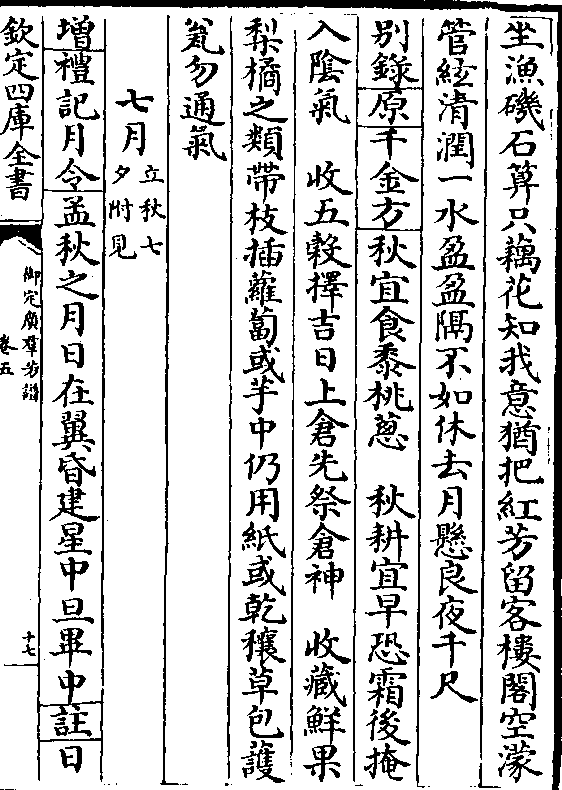 坐漁磯石算只藕花知我意猶把紅芳留客樓閣空濛
管絃清潤一水盈盈隔不如休去月懸良夜千尺
别錄原千金方秋宜食黍桃葱　秋耕宜早恐霜後掩
入隂氣　收五榖擇吉日上倉先祭倉神　收藏鮮果
梨橘之類帶枝插蘿蔔或芋中仍用紙或乾穰草包護
瓮勿通氣
七月立秋七夕附見
增禮記月令孟秋之月日在翼昏建星中旦畢中註日
欽定四庫全書
御定廣羣芳譜
卷五
十七